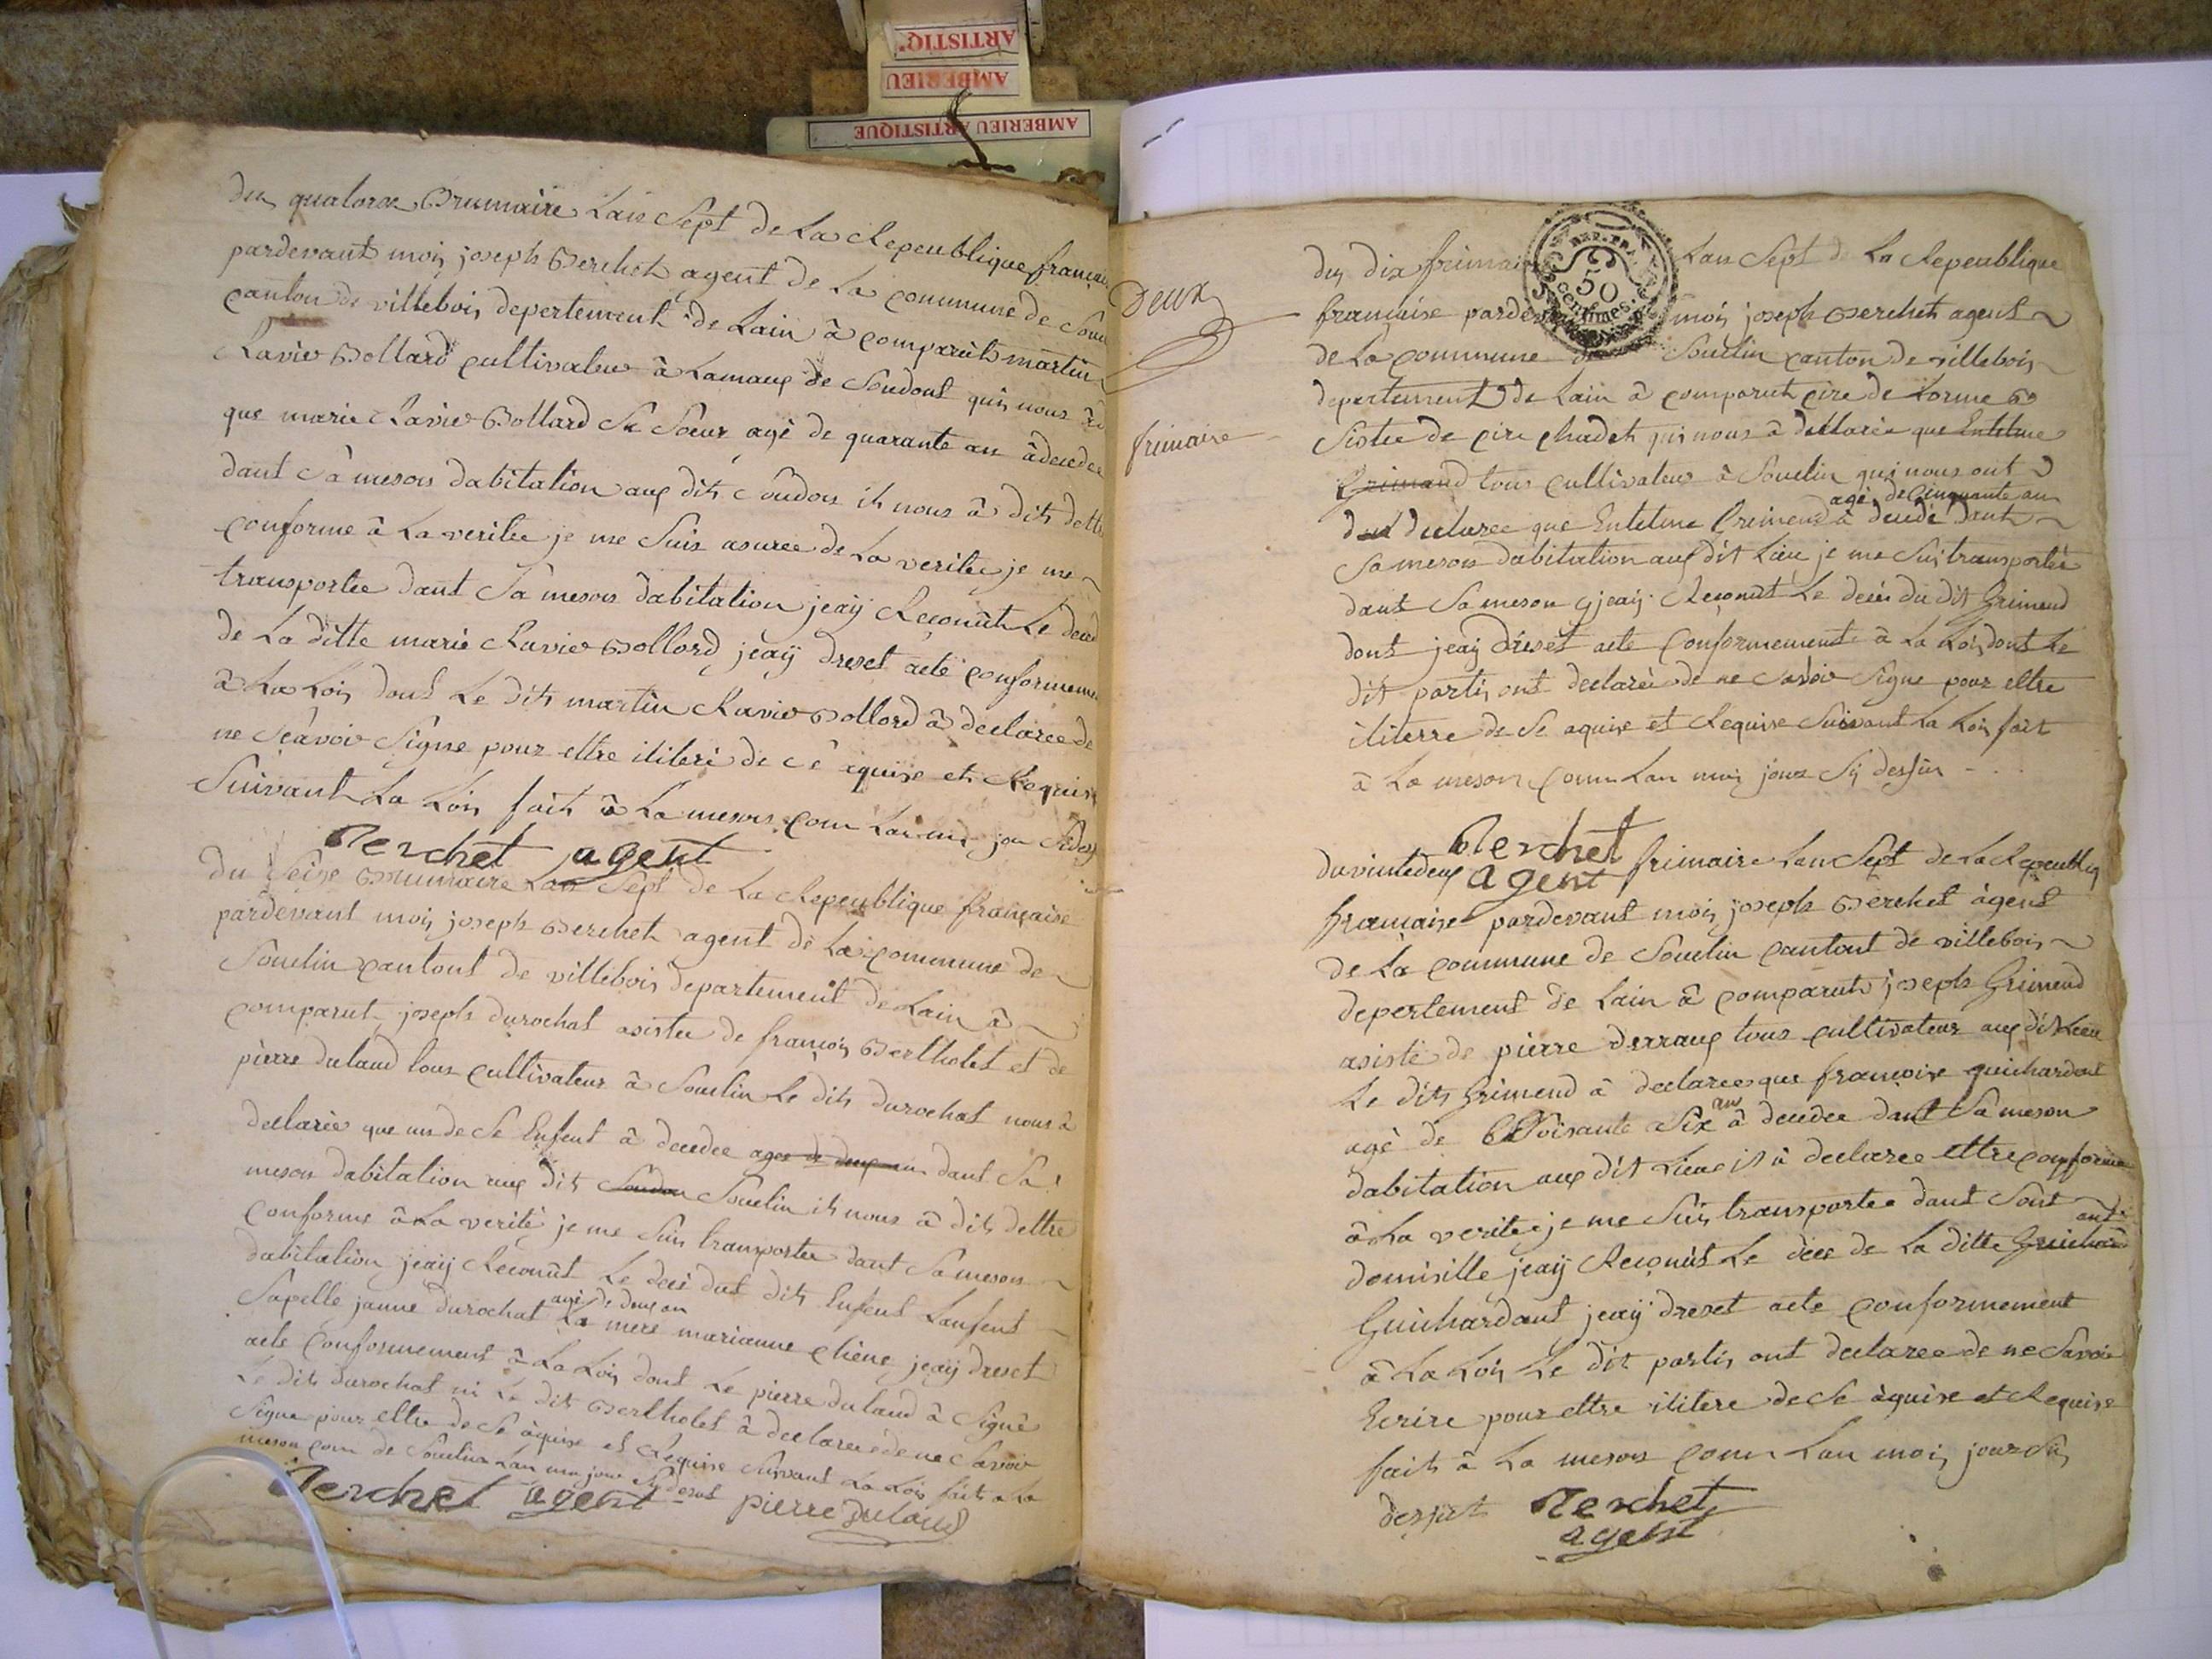 ARTISTIQ
AMBERIEU
AMBERIEU ARTISTIQUE
du quatorse Brumaire Lan Sept de La Republique français
pardevant moij joseph Berchet agent de La commune de Souc
canton de villebois depertement de Lain à comparut martin
Ravier Bollard cultivateur à Lamaux de Soudont qui nous à
que marie Ravier Bollard Sa Soeur agé de quarante an à decedee
dant Sa meson dabitation aux dit Soudon ih nous à dit dettre
conforme à La veritee je me Suis asuree de La veritee je me
transportee dant Sa meson dabitation jeaij Reconût Le deced
de La ditte marie Ravier Bollard jeaij dreset acte conformemen
à La Loij dont Le dit martin Ravier Bollard à declaree de
ne Seavoir Signe pour ettre iliteré de cé equise et Requise
Suivant La Loij fait à La meson com Lan
Berchet agent
Du Seise Brumaire Lan Sept de La Republique française
pardevant moij joseph Berchet agent de La commune de
Souclin cantont de villebois departement de Lain à
comparut joseph durochat asistee de françois Bertholet et de
pierre dulaud tous cultivateur à Souclin Le dit durochat nous à
declarée que un de Se Enfent à decedee agee de deux an dant Sa
meson dabitation aux dit Soudon Souclin ih nous à dit dettre
conforme à La verité je me Suis transportee dant Sa meson
dabitation jeaij Reconût Le decé dut dit Enfent Lanfent
Sapelle janne durochat agé de deux an La mere marianne chêne jeaij dreset
acte conformement à La Loij dont Le pierre dulaud à Signé
Le dit durochat ni Le dit Bertholet à declareé de ne Savoir
Signe pour ettre de Se àquise et Requise Suivant La Loij fait à La
meson com de Souclin Lan moi jour Sij desut
Berchet agent pierre dulaud
Deux
frimaire
REP. FRA.
50
centimes.
du dix frimaire Lan Sept de La Republique
française pardevant moij joseph Berchet agent
de La commune de Souclin canton de villebois
departement de Lain à comparut cire de Lorme
Sistee de cire chadet qui nous à dellarée que Entelme
Grimand tous cultivateur à Souclin qui nous ont
declaree que Entelme Grimend agé de Cinquante an à decedé dant
Sa meson dabitation aux dit Lieu je me Suis transportée
dant Sa meson jeaij Reconût Le decés du dit Grimend
dont jeaij dreset acte conformement à La Loij dont Le
dit partis ont declareé de ne Savoir Signe pour ettre
iliterre de Se aquise et Requise Suivant La Loij fait
à La meson com Lan moij jour Sij desSus
Berchet
agent
du vintedeux frimaire Lan Sept de La Republiq
française pardevant moij joseph Berchet àgent
de La commune de Souclin cantont de villebois
depertement de Lain à comparut joseph Grimend
asisté de pierre derraux tous cultivateur aux dit Lieu
Le dit Grimend à declaree que françoise guichardant
agé de Soisante Six an à decedee dant Sa meson
dabitation aux dit Lieu il à declaree ettre conforme
à La veritee je me Suis transportee dant Sont
domisille jeaij Reconût Le dece de La ditte Guichardant
Guichardant jeaij dreset acte conformement
à La Loij Le dit partis ont declaree de ne Savoir
Ecrire pour ettre ilitere de Se àquise et Requise
fait à La meson com Lan moij jour Sij
desut Berchet
agent